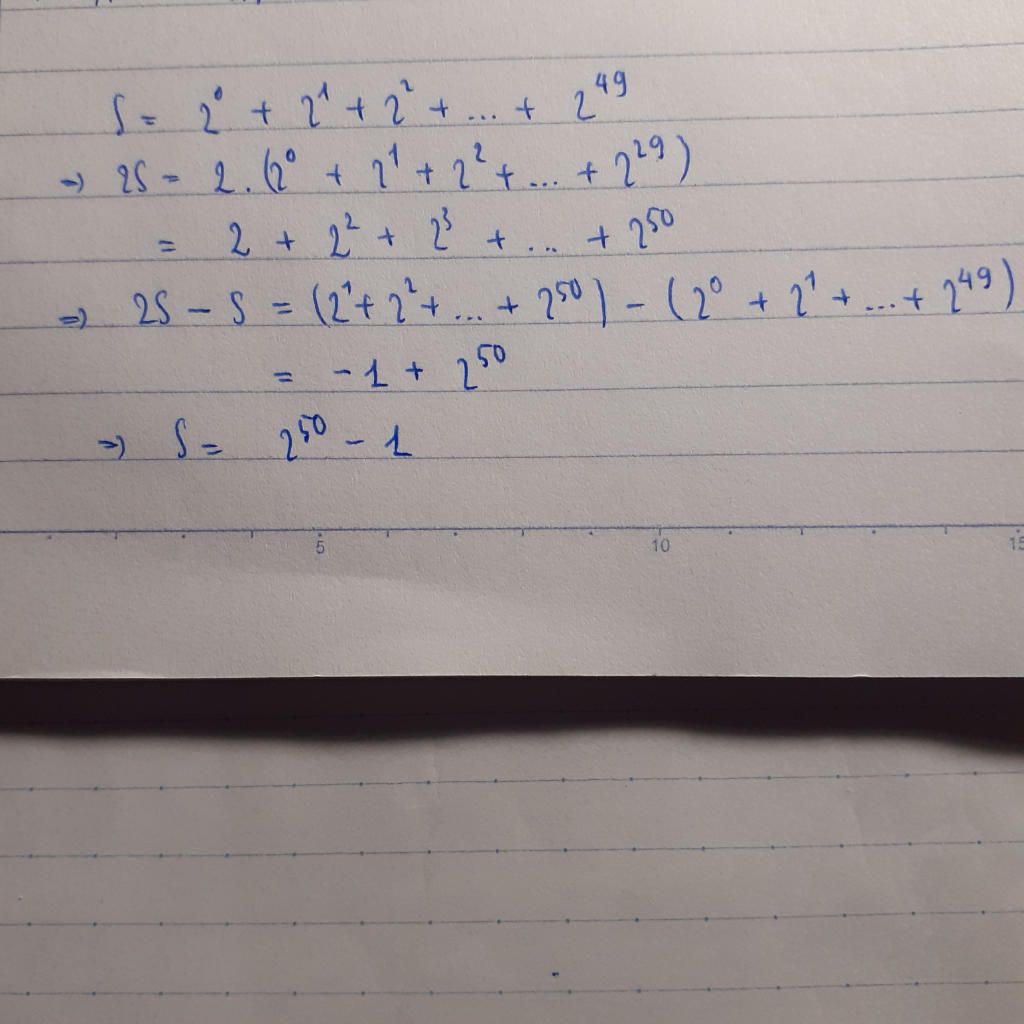 S = 2⁰ + 2¹ + 2² + ... + 2⁴⁹
⇒ 2S = 2.(2⁰ + 2¹ + 2² + ... + 2²⁹)
= 2 + 2² + 2³ + ... + 2⁵⁰
⇒ 2S - S = (2¹ + 2² + ... + 2⁵⁰) - (2⁰ + 2¹ + ... + 2⁴⁹)
= -1 + 2⁵⁰
⇒ S = 2⁵⁰ - 1
5 10 15